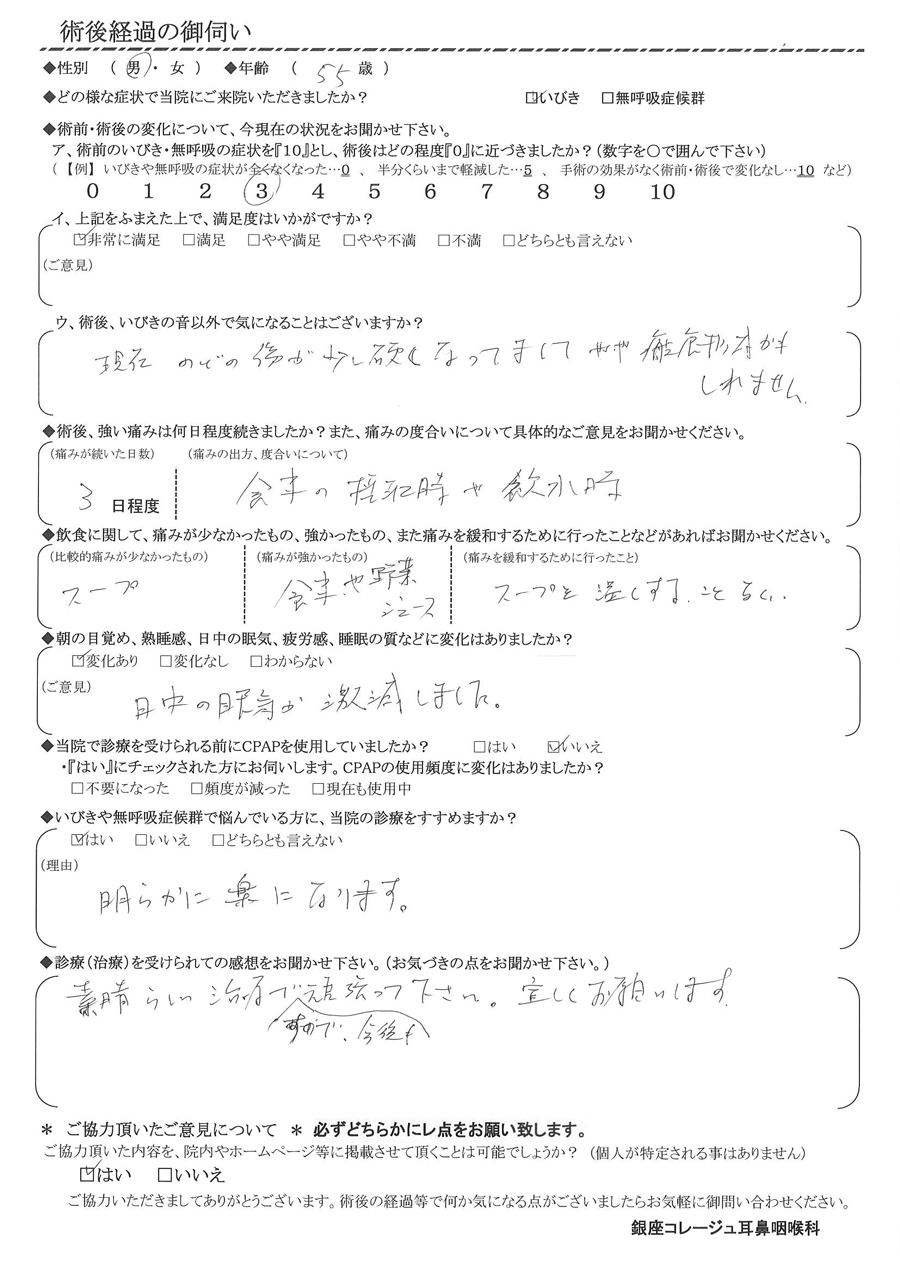 術後経過の御伺い
◆性別 （ 男 ・ 女 ） ◆年齢 （ 55 歳 ）
◆どの様な症状で当院にご来院いただきましたか？ ☑いびき □無呼吸症候群
◆術前・術後の変化について、今現在の状況をお聞かせ下さい。
ア、術前のいびき・無呼吸の症状を『10』とし、術後はどの程度『0』に近づきましたか？（数字を〇で囲んで下さい）
（ 【例】 いびきや無呼吸の症状が全くなくなった…0 、 半分くらいまで軽減した…5 、 手術の効果がなく術前・術後で変化なし…10 など）
0 1 2 3 4 5 6 7 8 9 10
イ、上記をふまえた上で、満足度はいかがですか？
☑非常に満足 □満足 □やや満足 □やや不満 □不満 □どちらとも言えない
（ご意見）
ウ、術後、いびきの音以外で気になることはございますか？
現在 のどの傷が少し硬くなってまして やや かも
しれません。
◆術後、強い痛みは何日程度続きましたか？また、痛みの度合いについて具体的なご意見をお聞かせください。
（痛みが続いた日数） （痛みの出方、度合いについて）
3 日程度 食事の摂取時や飲水時
◆飲食に関して、痛みが少なかったもの、強かったもの、また痛みを緩和するために行ったことなどがあればお聞かせください。
（比較的痛みが少なかったもの） （痛みが強かったもの） （痛みを緩和するために行ったこと）
スープ 食事や野菜 スープを温くする。ことくらい。
ジュース
◆朝の目覚め、熟睡感、日中の眠気、疲労感、睡眠の質などに変化はありましたか？
☑変化あり □変化なし □わからない
（ご意見）
日中の眠気が激減しました。
◆当院で診療を受けられる前にCPAPを使用していましたか？ □はい ☑いいえ
・『はい』にチェックされた方にお伺いします。CPAPの使用頻度に変化はありましたか？
□不要になった □頻度が減った □現在も使用中
◆いびきや無呼吸症候群で悩んでいる方に、当院の診療をすすめますか？
☑はい □いいえ □どちらとも言えない
（理由）
明らかに楽になります。
◆診療（治療）を受けられての感想をお聞かせ下さい。（お気づきの点をお聞かせ下さい。）
素晴らしい治療で頑張って下さい。宜しくお願いします
すので、今後も
＊ ご協力頂いたご意見について ＊ 必ずどちらかにレ点をお願い致します。
ご協力頂いた内容を、院内やホームページ等に掲載させて頂くことは可能でしょうか？ （個人が特定される事はありません）
☑はい □いいえ
ご協力いただきましてありがとうございます。術後の経過等で何か気になる点がございましたらお気軽に御問い合わせください。
銀座コレージュ耳鼻咽喉科